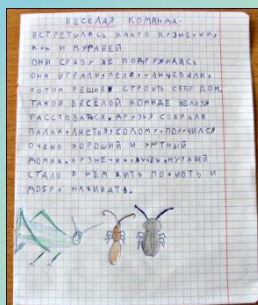 ВЕСЁЛАЯ КОМАНДА.
ВСТРЕТИЛИСЬ КАКТО КУЗНЕЧИК,
ЖУК И МУРАВЕЙ.
ОНИ СРАЗУ ЖЕ ПОДРУЖИЛИСЬ
ОНИ ИГРАЛИ, ПЕЛИ, ТАНЦЕВАЛИ,
ПОТОМ РЕШИЛИ СТРОИТЬ СЕБЕ ДОМ.
ТАКОЙ ВЕСЁЛОЙ КОМНДЕ НЕЛЬЗЯ
РАССТОВАТЬСЯ. ДРУЗЬЯ СОБРАЛИ
ПАЛКИ, ЛИСТЬЯ, СОЛОМУ. ПОЛУЧИЛСЯ
ОЧЕНЬ ХОРОШИЙ И УЮТНЫЙ
ДОМИК. КУЗНЕЧИК, ЖУЧЕК, МУРАВЕЙ
СТАЛИ В НЁМ ЖИТЬ ПОЖИВАТЬ И
ДОБРА НАЖИВАТЬ.